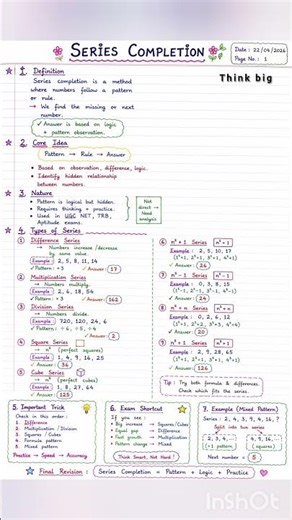 SERIES COMPLETION
Date : 22/04/2026
Page No : 1
Think big
1. Definition
Series completion is a method
where numbers follow a pattern
or rule.
→ We find the missing or next
number.
✓ Answer is based on logic
+ pattern observation.
2. Core Idea
Pattern → Rule → Answer
• Based on observation, difference, logic.
• Identify hidden relationship
between numbers.
3. Nature
• Pattern is logical but hidden.
• Requires thinking + practice.
• Used in UGC NET, TRB,
Aptitude exams.
Not
direct →
Need
analysis
4. Types of Series
① Difference Series
→ Numbers increase / decrease
by same value.
Example : 2, 5, 8, 11, 14
✓ Pattern : +3
✓ Answer : 17
② Multiplication Series
→ Numbers multiply.
Example : 2, 6, 18, 54
✓ Pattern : ×3
✓ Answer : 162
③ Division Series
→ Numbers divide.
Example : 720, 120, 24, 6
✓ Pattern : ÷6, ÷5, ÷4
✓ Answer : 2
④ Square Series
→ n² (perfect squares)
Example : 1, 4, 9, 16, 25
✓ Answer : 36
⑤ Cube Series
→ n³ (perfect cubes)
Example : 1, 8, 27, 64
✓ Answer : 125
⑥ n² + 1 Series n² + 1
Example : 2, 5, 10, 17
(1²+1, 2²+1, 3²+1, 4²+1)
✓ Answer : 26
⑦ n² − 1 Series n² − 1
Example : 0, 3, 8, 15
✓ Answer : 24
Example : 0, 2, 6, 12
✓ Answer : 20
Example : 2, 9, 28, 65
(1³+1, 2³+1, 3³+1, 4³+1)
✓ Answer : 126
Tip : Try both formula & differences.
Check which fits the series.
5. Important Trick
Check in this order :
1. Difference
2. Multiplication / Division
3. Squares / Cubes
4. Formula pattern
5. Mixed pattern
Practice → Speed → Accuracy
6. Exam Shortcut
If you see :
• Big increase → Square / Cubes
• Equal gap → Difference
• Fast growth → Multiplication
• Pattern change → Mixed
Think Smart, Not Hard !
7. Example (Mixed Pattern)
Series : 2, 4, 3, 9, 4, 16, ?
Split into two series
2, 3, 4, ...
4, 9, 16, ...
Next number = 5
Final Revision : Series Completion = Pattern + Logic + Practice
InShOt